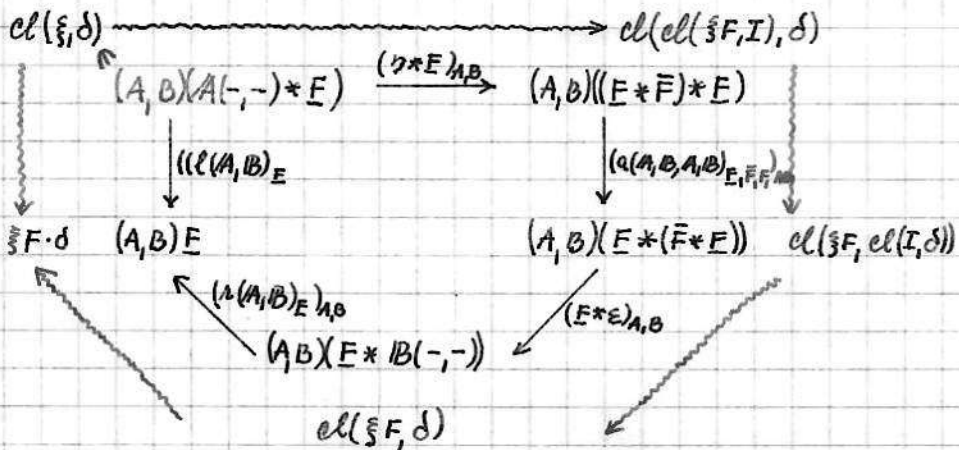 cl(ξ,δ) cl(cl(ξF,I),δ)
(A,B)(𝔸(-,-)*F̲) (η*F̲)_{A,B} (A,B)((F̲*F̄)*F̲)
((l(𝔸,𝔹)_{F̲} (a(𝔸,𝔹,𝔸,𝔹)_{F̲,F̄,F̲})
ξF·δ (A,B)F̲ (A,B)(F̲*(F̄*F̲)) cl(ξF,cl(I,δ))
(r(𝔸,𝔹)_{F̲})_{A,B} (F̲*ε)_{A,B}
(A,B)(F̲*𝔹(-,-))
cl(ξF,δ)